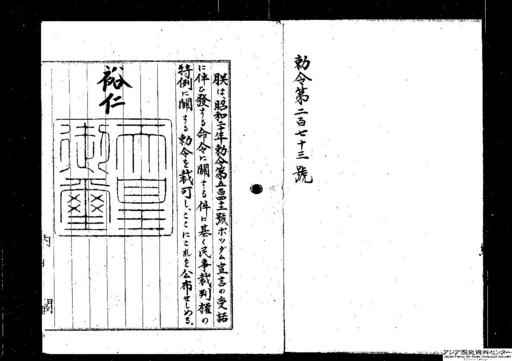 勅令第二百七十三號
朕は、昭和二十年勅令第五百四十二號ポツダム宣言の受諾
に伴ひ發する命令に關する件に基く民事裁判權の
特例に關する勅令を裁可し、ここにこれを公布せしめる。
裕仁
天皇
御璽
内閣
アジア歴史資料センター